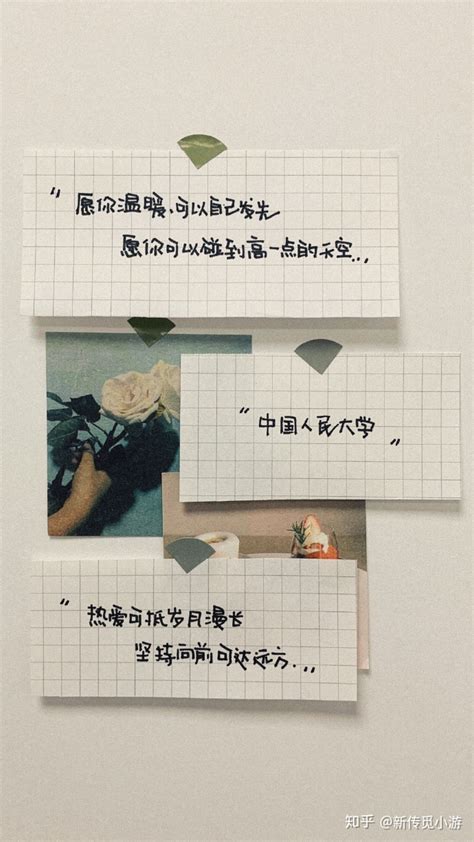 “愿你温暖、可以自己发光
愿你可以碰到高一点的天空...
“中国人民大学”
“热爱可抵岁月漫长
坚持向前可达远方...
知乎 @新传觅小游